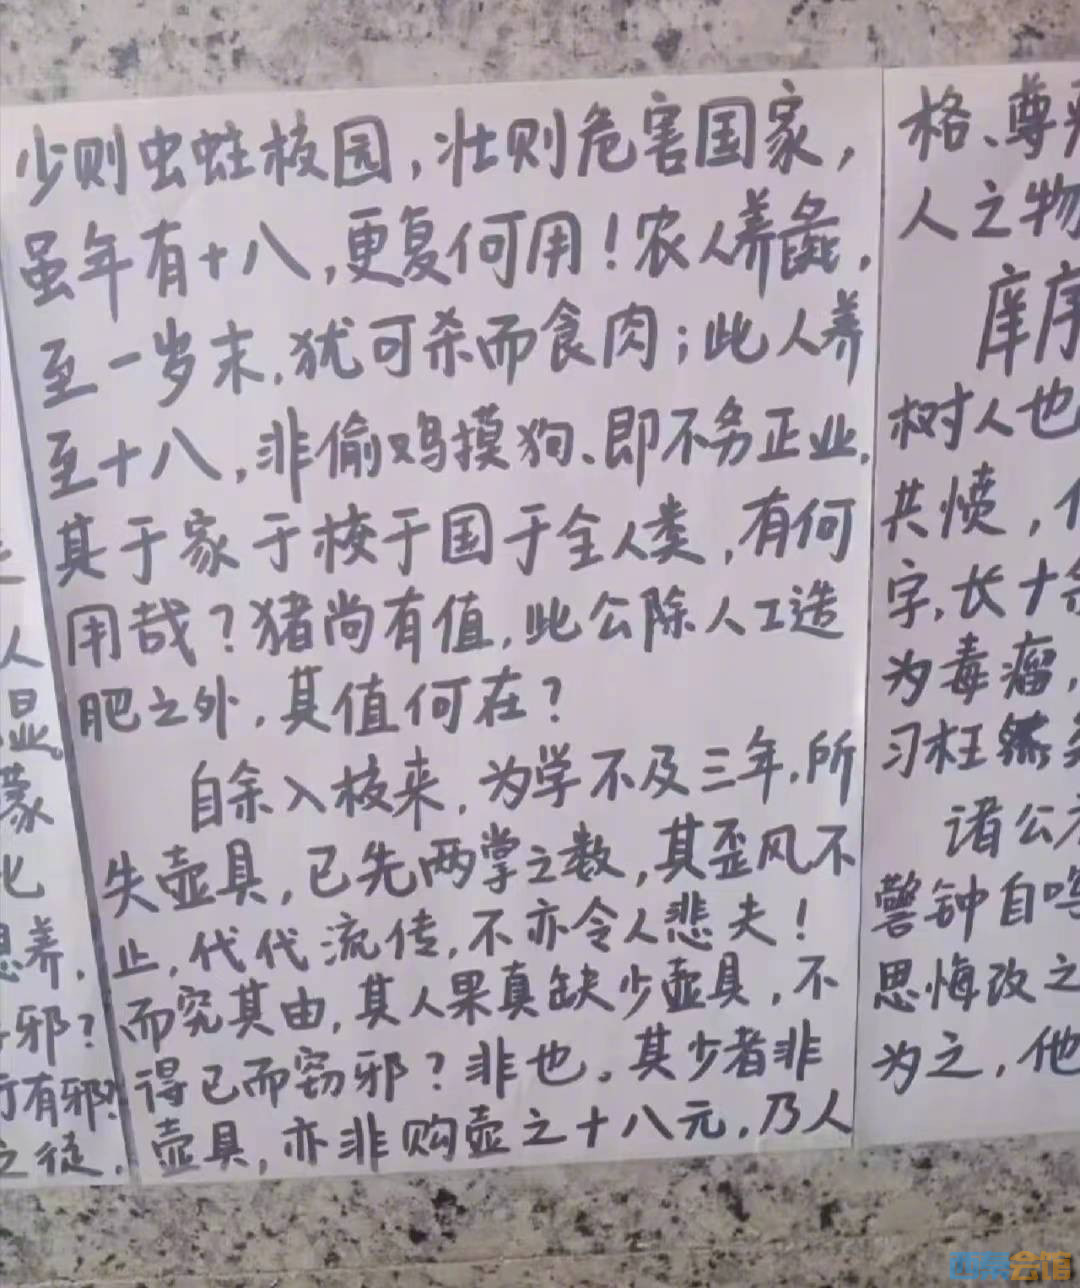 少则虫蛀校园，壮则危害国家，
虽年有十八，更复何用！农人养彘，
至一岁末，犹可杀而食肉；此人养
至十八，非偷鸡摸狗、即不务正业，
其于家于校于国于全人类，有何
用哉？猪尚有值，此公除人工造
肥之外，其值何在？
自余入校来，为学不及三年，所
失壶具，已先两掌之数，其歪风不
止，代代流传，不亦令人悲夫！
而究其由，其人果真缺少壶具，不
得已而窃邪？非也。其少者非
壶具，亦非购壶之十八元，乃人
格、尊
人之物
庠序
树人也
共愤，
字，长十余
为毒瘤，
习枉然
诸公
警钟自鸣
思悔改之
为之，他
人
显。
蒙
化
思养，
邪？
有邪？
之徒，
西秦会馆